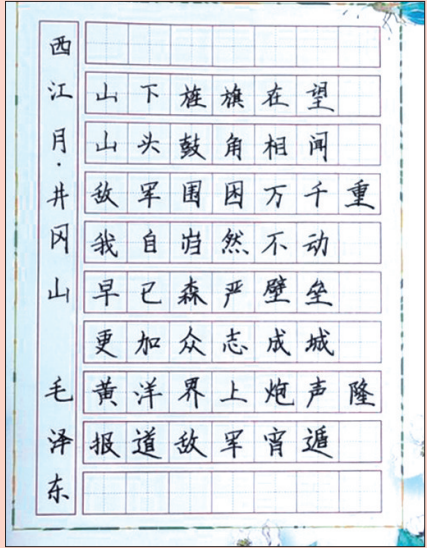 西江月·井冈山 毛泽东
山下旌旗在望
山头鼓角相闻
敌军围困万千重
我自岿然不动
早已森严壁垒
更加众志成城
黄洋界上炮声隆
报道敌军宵遁